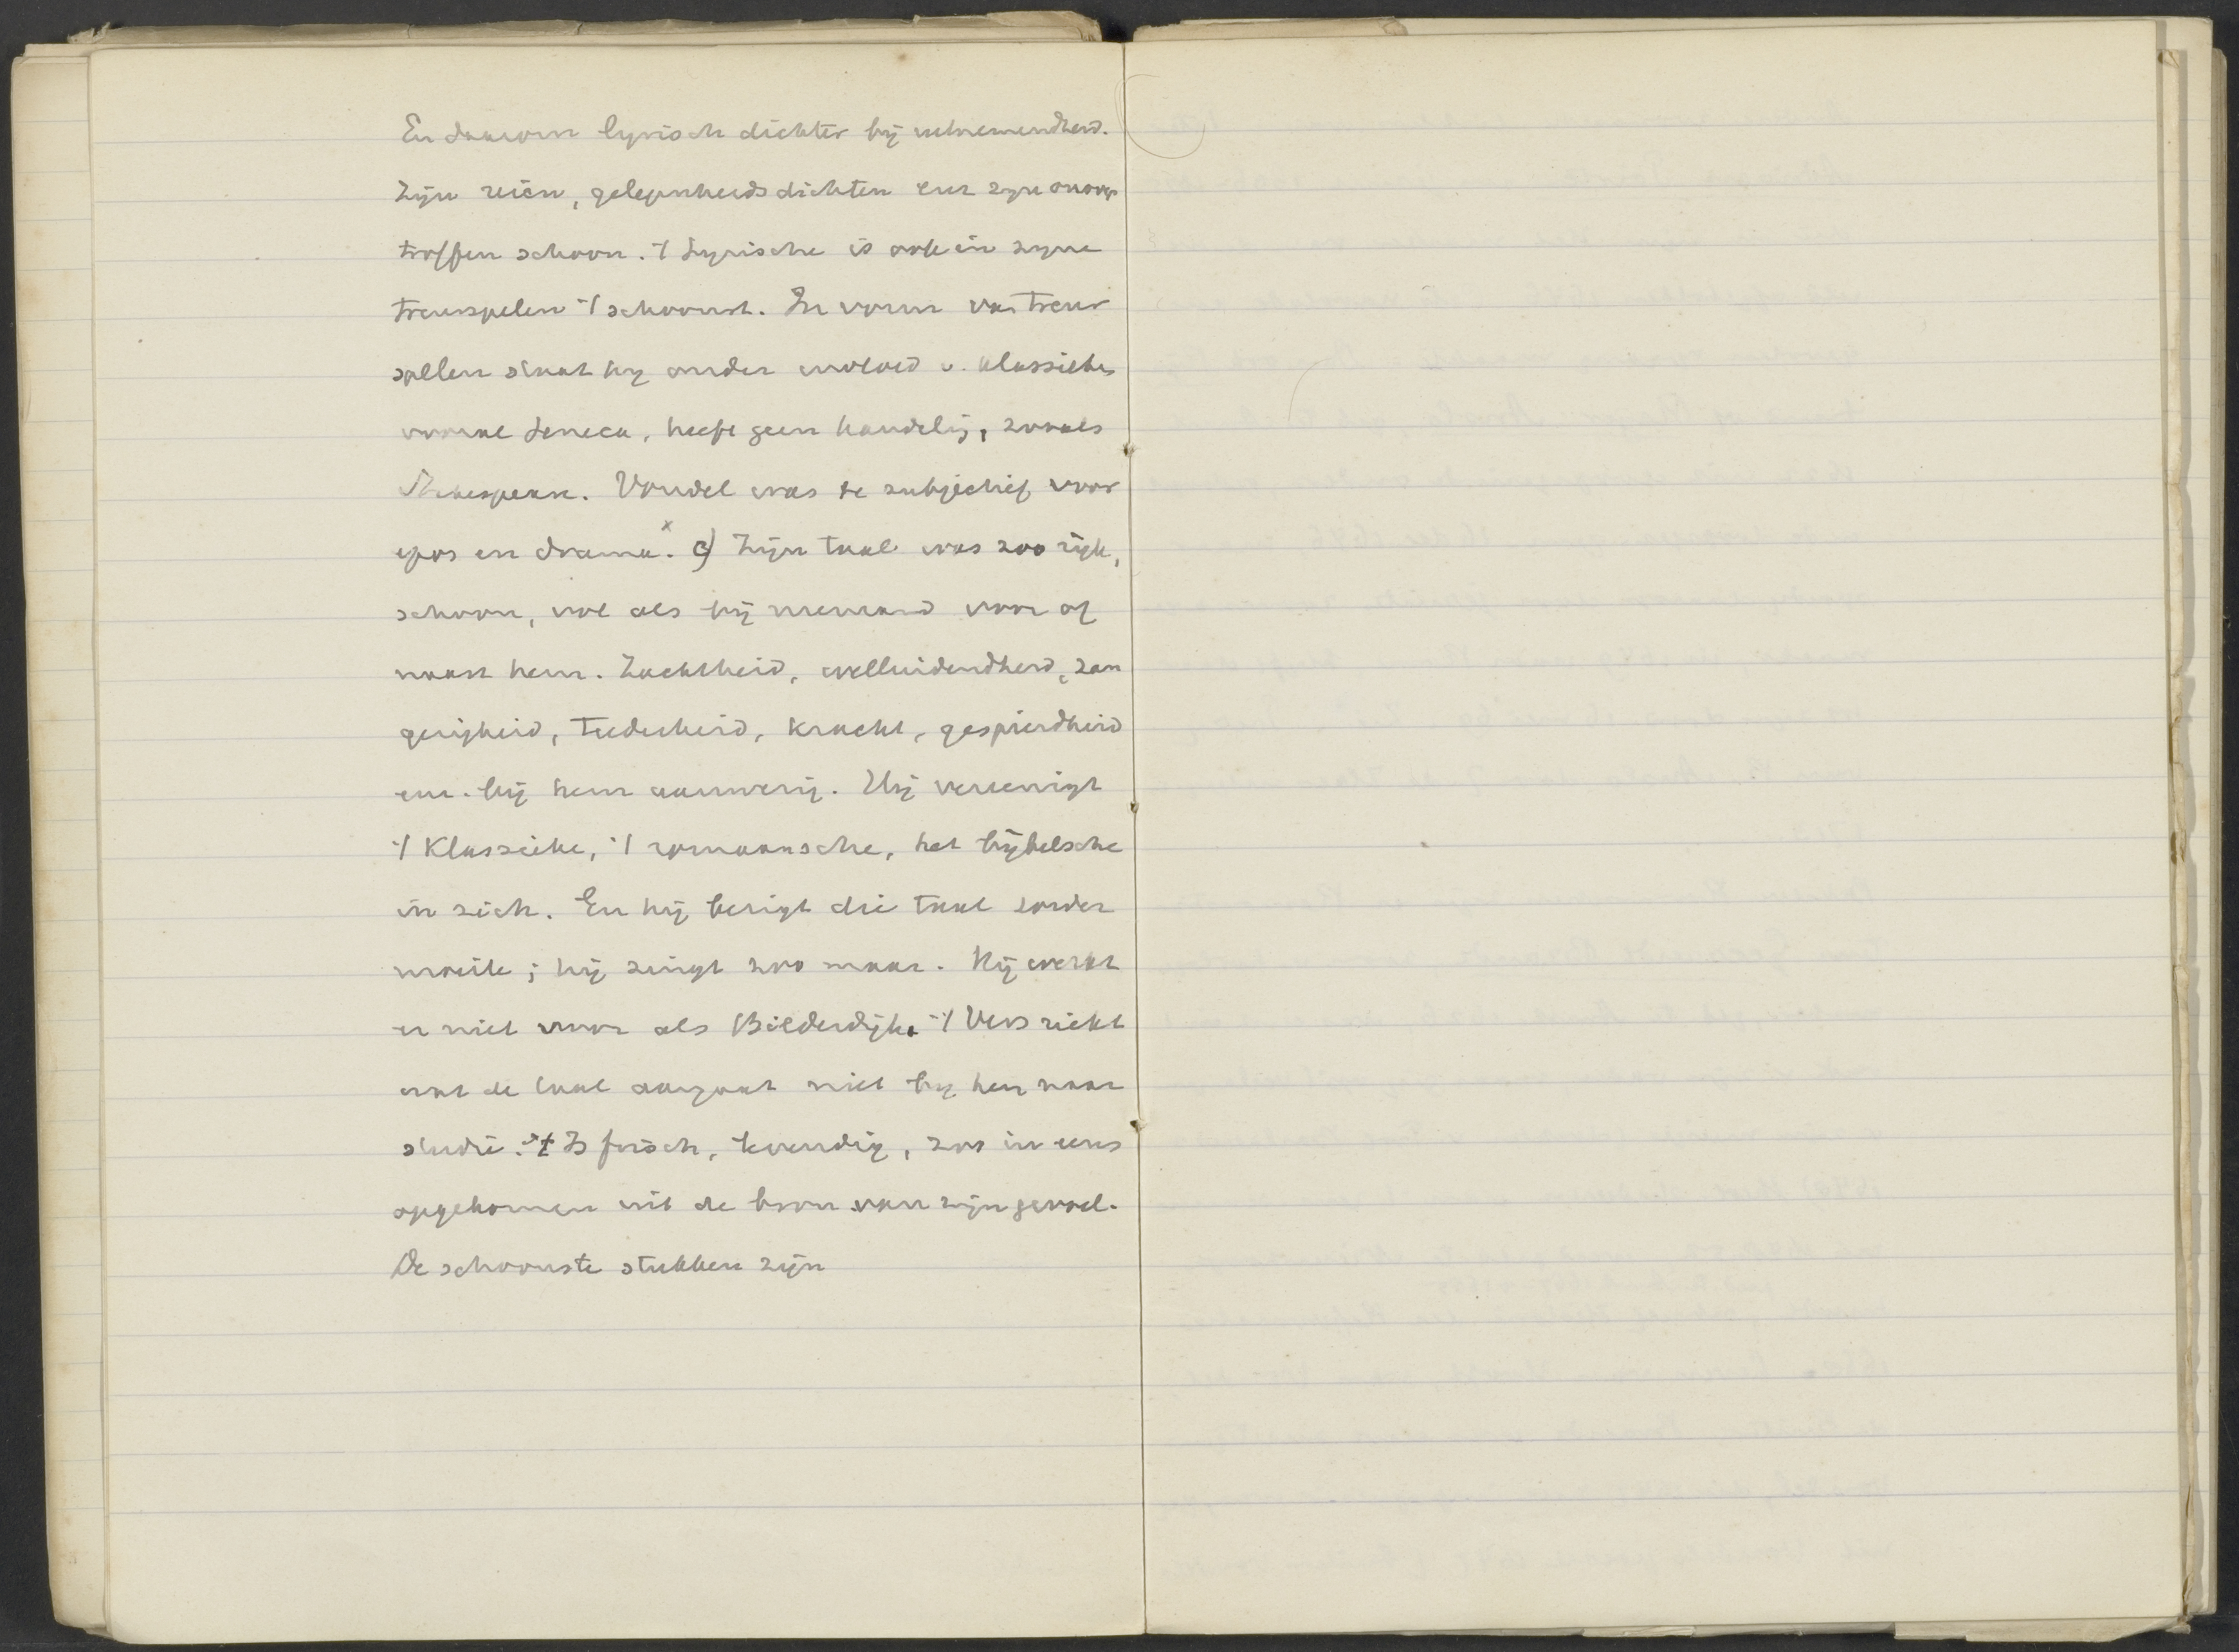 En daarom lyrisch dichter bij uitnemendheid.
Zijn reien, gelegenheidsdichten enz zijn onover
troffen schoon. 't Lyrische is ook in zijne
treurspelen 't schoonst. In vorm van treur
spellen staat hij onder invloed v. klassieke
vooral Seneca, heeft geen handelij, zooals
Shakespeare. Vondel was te subjectief voor
epos en drama x. c) Zijn taal was zoo rijk,
schoon, vol als bij niemand voor of
naast hem. Zachtheid, welluidendheid, zan
gerigheid, teederheid, kracht, gespierdheid
enz. bij hem aanwezig. Hij vereenigt
't Klassieke, 't romaansche, het bijbelsche
in zich. En hij bezigt die taal zonder
moeite; hij zingt zoo maar. Hij werkt
er niet voor als Bilderdijk. 't Vers riekt
wat de taal aangaat niet bij hem naar
studie. 't Is frisch, levendig, zoo in eens
opgekomen uit de bron van zijn gevoel.
De schoonste stukken zijn